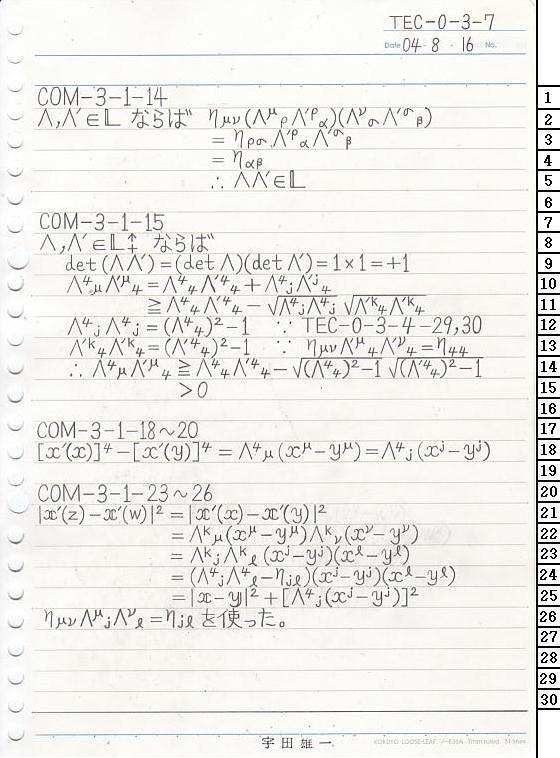 TEC-0-3-7
Date 04・8・16 No.
COM-3-1-14
Λ,Λ′∈𝕃 ならば η_{μν}(Λ^μ_ρ Λ′^ρ_α)(Λ^ν_σ Λ′^σ_β)
= η_{ρσ} Λ′^ρ_α Λ′^σ_β
= η_{αβ}
∴ ΛΛ′∈𝕃
COM-3-1-15
Λ,Λ′∈𝕃^↑_+ ならば
det(ΛΛ′)=(det Λ)(det Λ′)=1×1=+1
Λ^4_μ Λ′^μ_4 = Λ^4_4 Λ′^4_4 + Λ^4_j Λ′^j_4
≧ Λ^4_4 Λ′^4_4 − √(Λ^4_j Λ^4_j) √(Λ′^k_4 Λ′^k_4)
Λ^4_j Λ^4_j = (Λ^4_4)²−1 ∵ TEC-0-3-4-29,30
Λ′^k_4 Λ′^k_4 = (Λ′^4_4)²−1 ∵ η_{μν} Λ′^μ_4 Λ′^ν_4 = η_{44}
∴ Λ^4_μ Λ′^μ_4 ≧ Λ^4_4 Λ′^4_4 − √((Λ^4_4)²−1) √((Λ′^4_4)²−1)
>0
COM-3-1-18~20
[x′(x)]^4−[x′(y)]^4 = Λ^4_μ(x^μ−y^μ)=Λ^4_j(x^j−y^j)
COM-3-1-23~26
|x′(z)−x′(w)|² = |x′(x)−x′(y)|²
= Λ^k_μ(x^μ−y^μ)Λ^k_ν(x^ν−y^ν)
= Λ^k_j Λ^k_ℓ (x^j−y^j)(x^ℓ−y^ℓ)
= (Λ^4_j Λ^4_ℓ−η_{jℓ})(x^j−y^j)(x^ℓ−y^ℓ)
= |x−y|²+[Λ^4_j(x^j−y^j)]²
η_{μν} Λ^μ_j Λ^ν_ℓ = η_{jℓ} を使った。
宇田雄一
KOKUYO LOOSE-LEAF ノ-836A 7mm ruled 31 lines
1
2
3
4
5
6
7
8
9
10
11
12
13
14
15
16
17
18
19
20
21
22
23
24
25
26
27
28
29
30